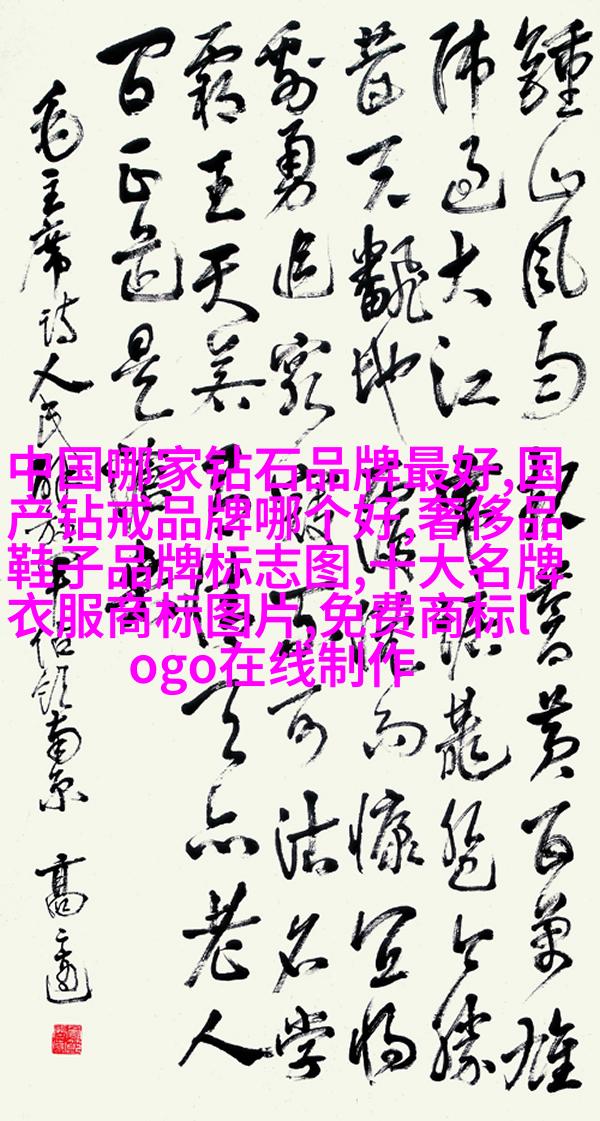 中国哪家钻石品牌最好,国
产钻戒品牌哪个好,奢侈品
鞋子品牌标志图,十大名牌
衣服商标图片,免费商标l
ogo在线制作
鍾山風雨起蒼黃百萬雄
師過大江虎踞龍盤今勝
昔天飜地覆慨而慷宜將
剩勇追窮寇不可沽名學
霸王天若有情天亦老人
間正道是滄桑
毛主席詩人民解放軍佔領南京 高